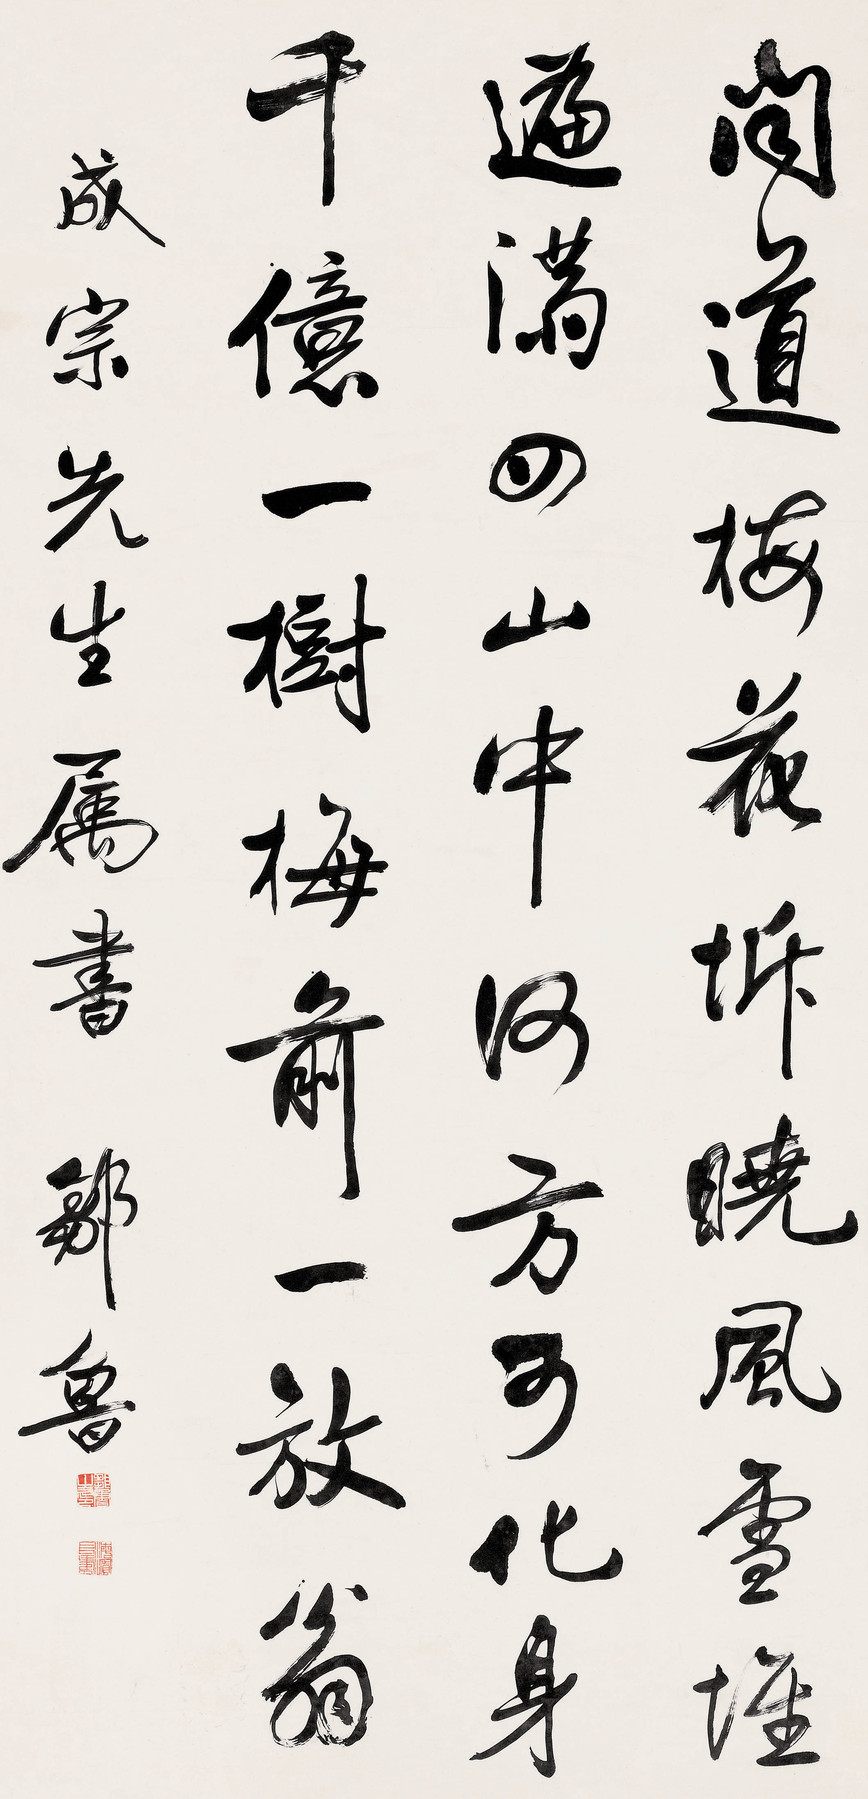 聞道梅花坼曉風雪堆
遍滿四山中何方可化身
千億一樹梅前一放翁
成宗先生属書 鄒魯